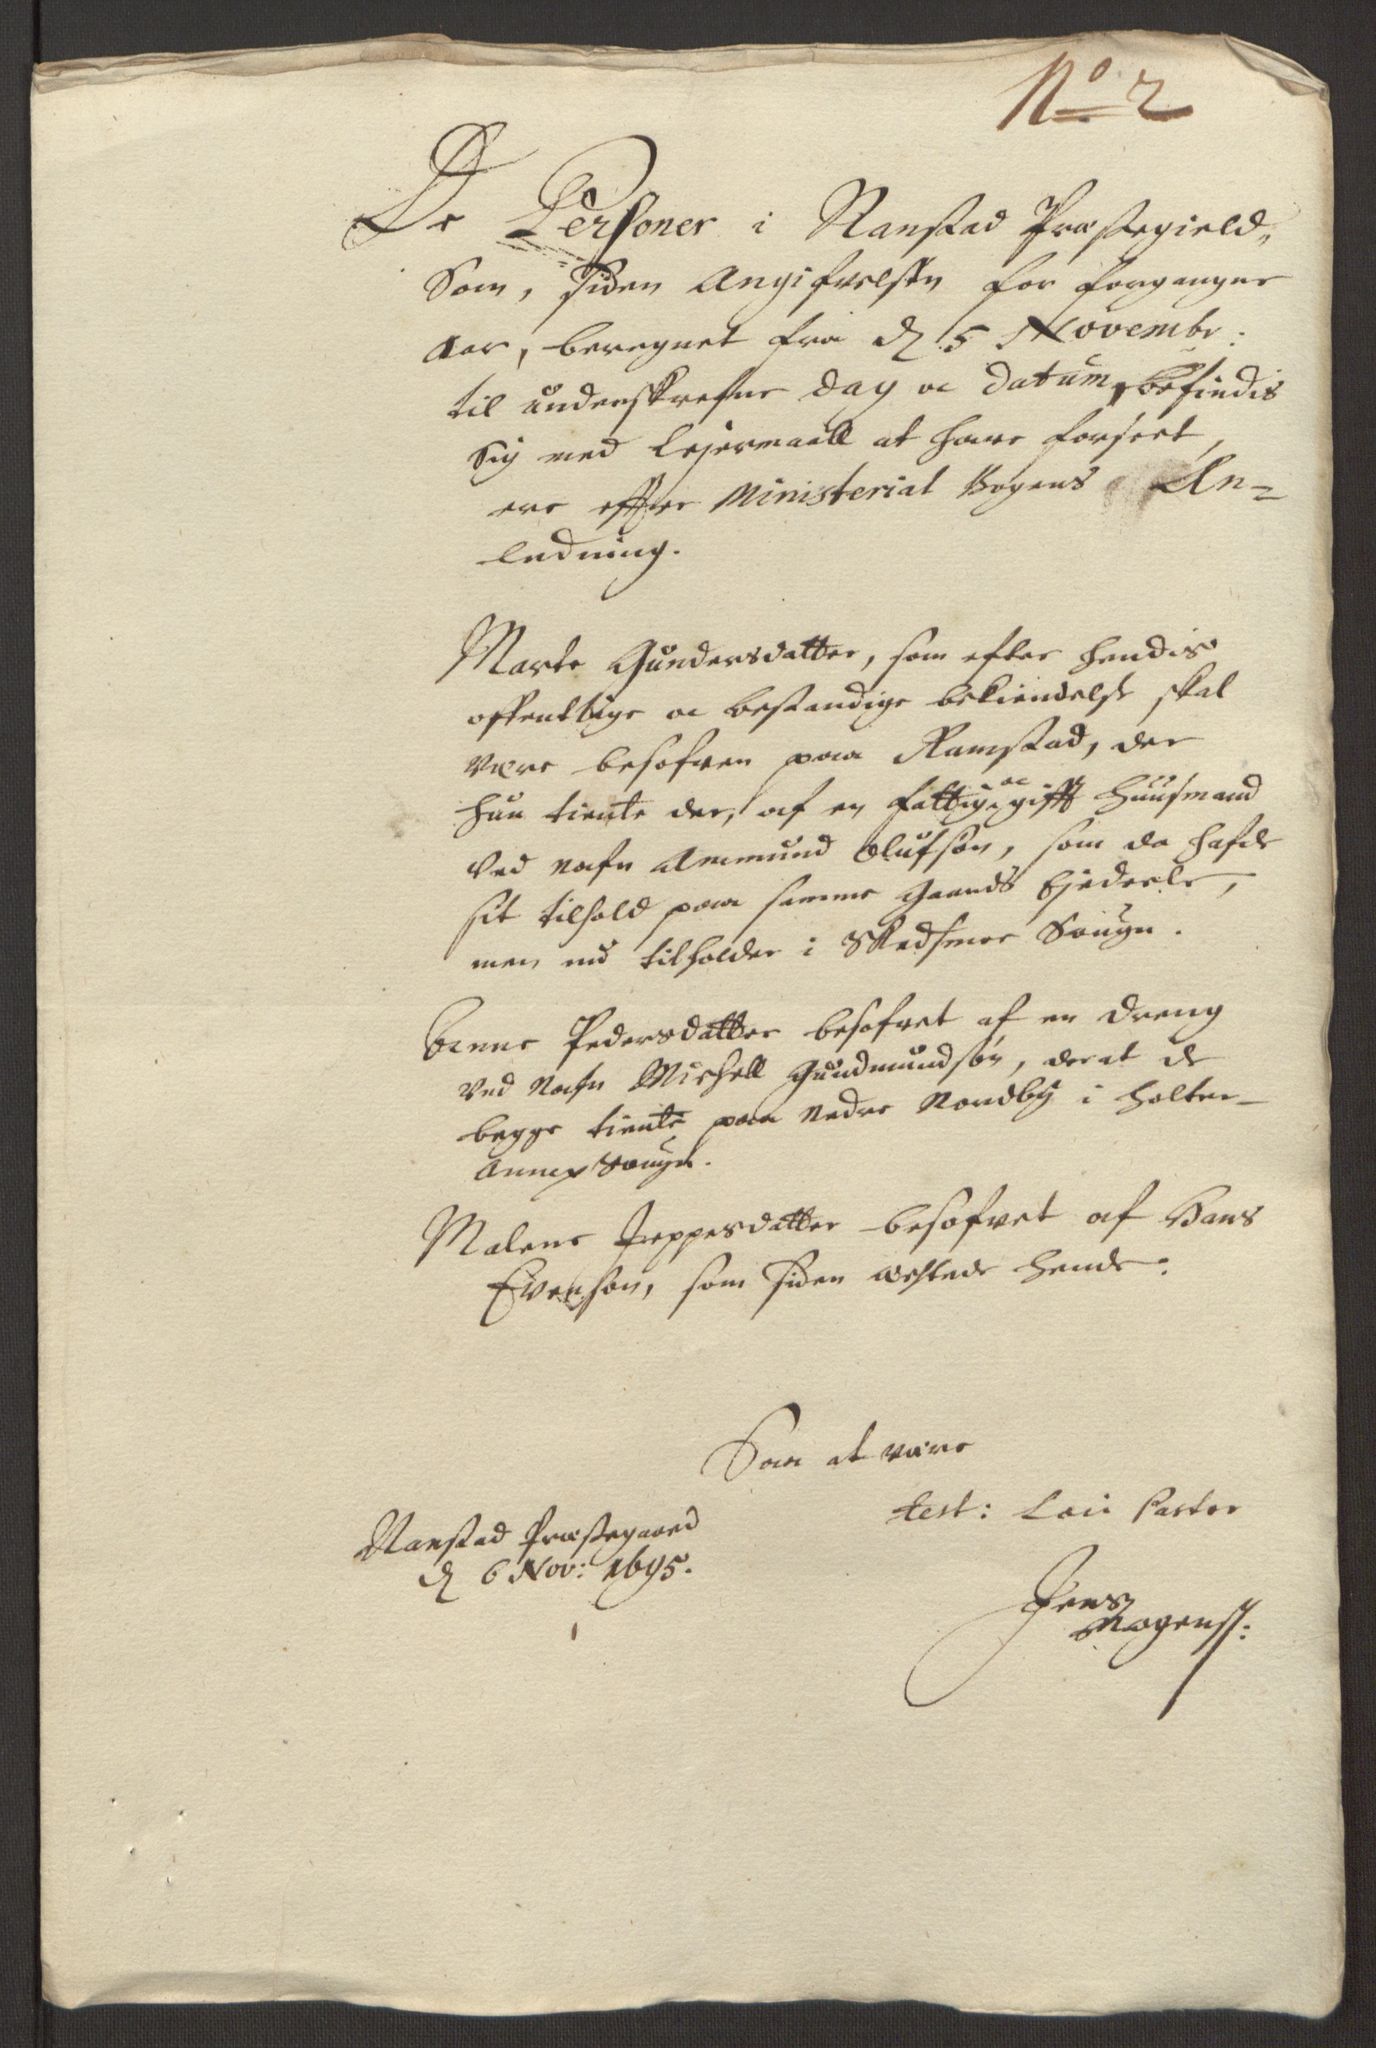 No 2
De Personer i Nanstad Præstegield,
Som, siden Angifvelsen for forgangne
Aar, beregnet fra d 5 Novembr:
til underskrefne dag oc datum, befindis
Sig med Lejermaall at have forseet,
ere effter Ministerial Bogens An=
ledning.
Marte Gundersdatter, som efter hendis
offentlige oc bestandige bekiendelse skal
være besofven paa Ramstad, der
hun tiente der, af en fattig oc gifft huusmand
ved nafn Ammund Olufsøn, som da hafde
sit tilhold paa samme gaards Ejedeele,
men nu tilholder i Skedsmoe Sougn.
Anne Pedersdatter besofvet af en dreng
ved Nafn Michell Gudmundsøn, der at de
begge tiente paa Nedre Nordby i Holter
Annex Sougn.
Malene Jeppesdatter besofvet af Hans
Evensøn, som siden ægtede hende.
Saa at være
test: Loci Pastor
Nanstad Præstegaard
d 6 Nov: 1695.
Jens
Mogenss: